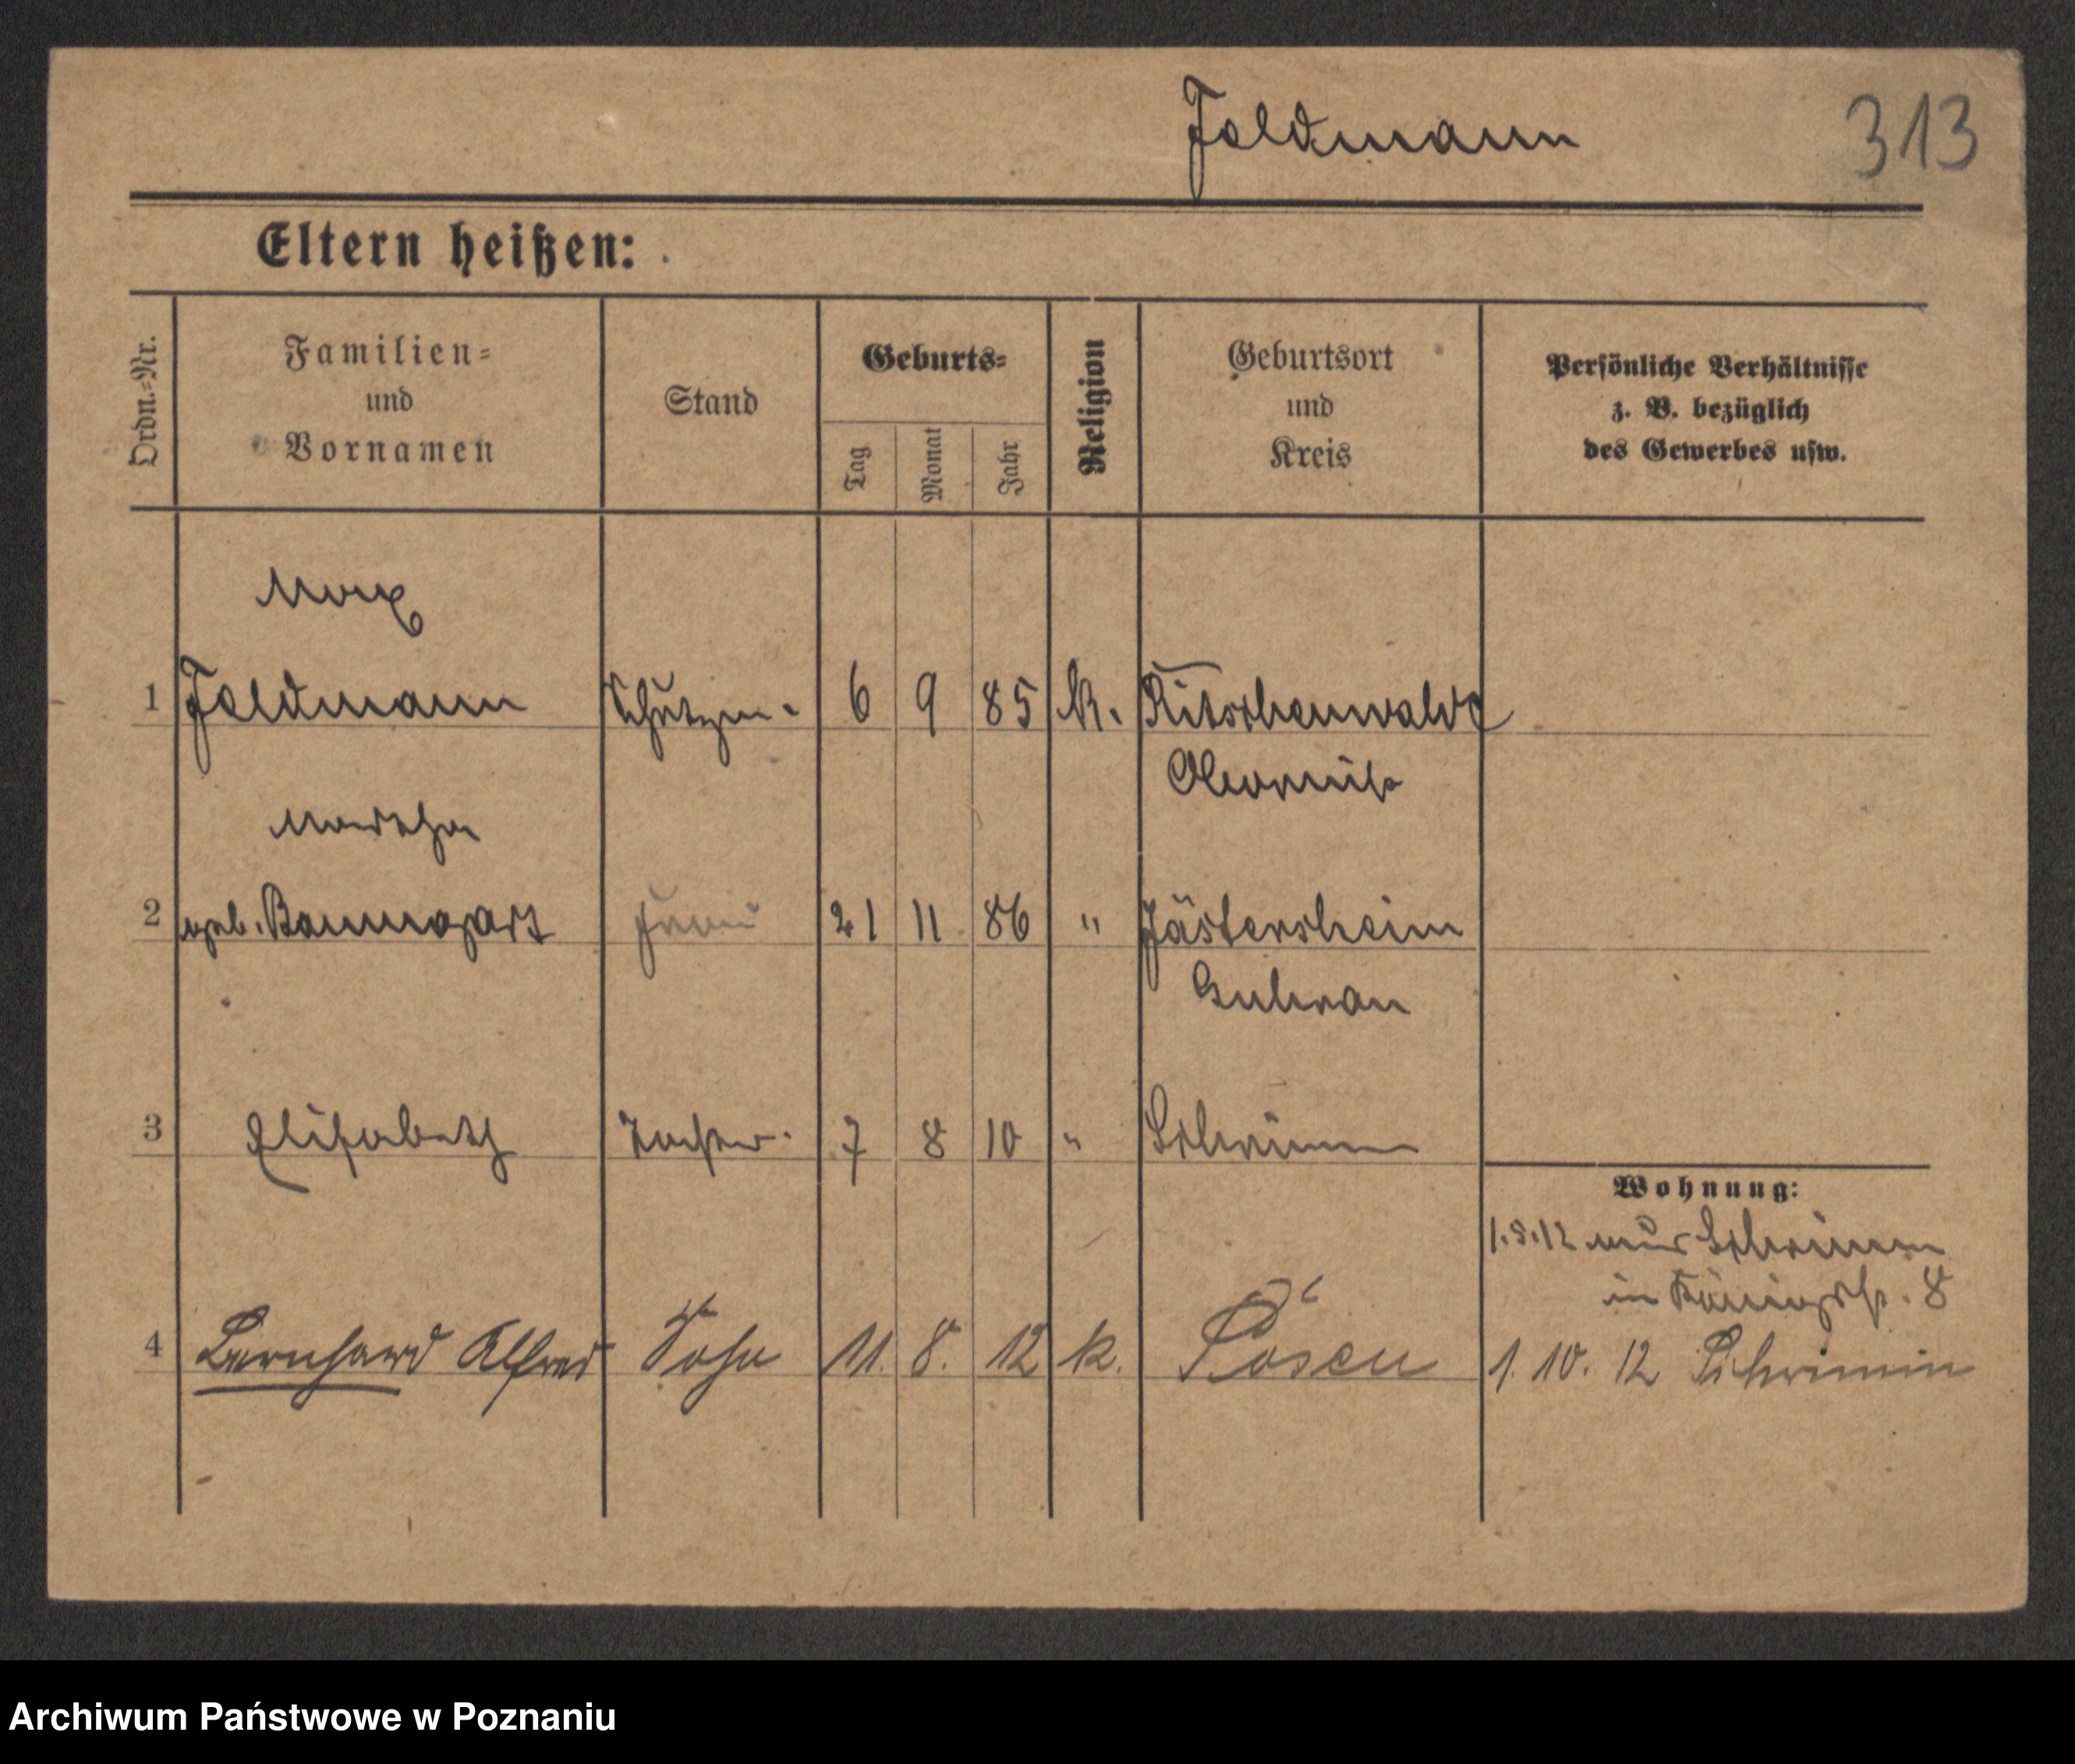 Feldmann 313
Eltern heißen:
Ordn.=Nr. Familien= und Vornamen Stand Geburts= Tag Monat Jahr Religion Geburtsort und Kreis Persönliche Verhältnisse z. B. bezüglich des Gewerbes usw.
Max
1 Feldmann Schutzm. 6 9 85 k. Ritschenwalde
Obornik
Martha
2 geb. Baumgart Frau 21 11 86 " Jästersheim
Guhrau
3 Elisabeth Tochter. 7 8 10 " Schrimm
Wohnung:
1.5.12 aus Schrimm
in Königstr. 8
4 Bernhard Alfred Sohn 11. 8. 12 k. Posen 1. 10. 12 Schrimm
Archiwum Państwowe w Poznaniu